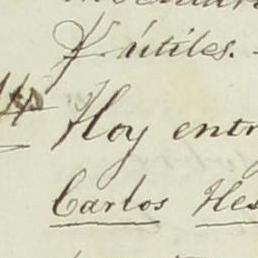 y útiles.
Hoy entr
Carlos Hes